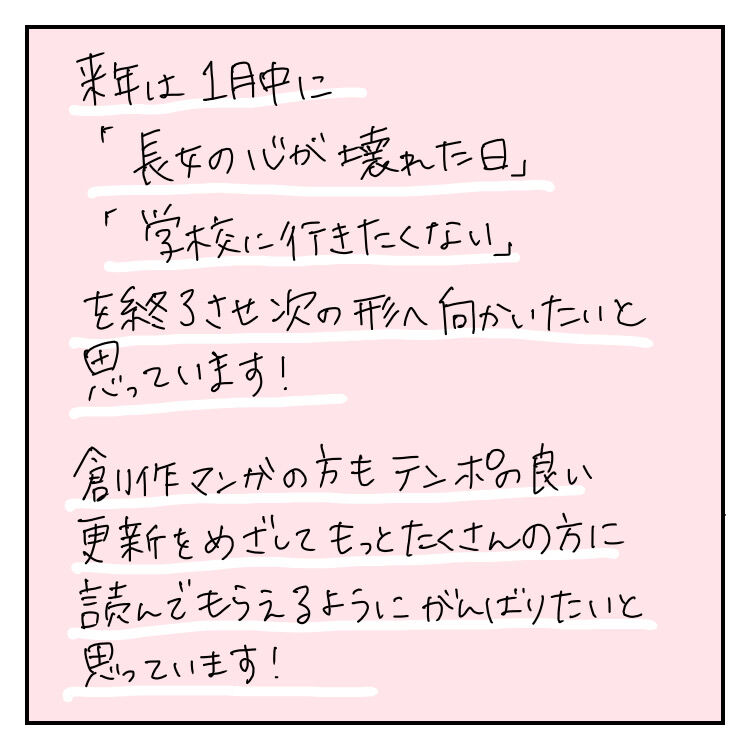 来年は1月中に
「長女の心が壊れた日」
「学校に行きたくない」
を終了させ次の形へ向かいたいと
思っています!
創作マンガの方もテンポの良い
更新をめざしてもっとたくさんの方に
読んでもらえるようにがんばりたいと
思っています!